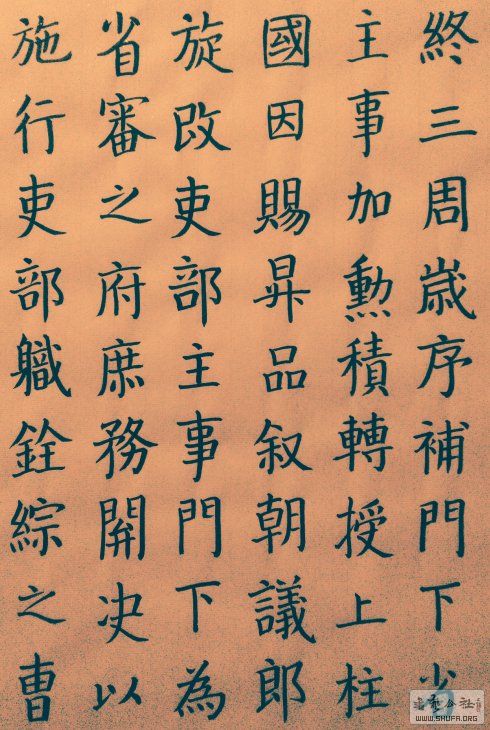 終三周歳序補門下省
主事加勲積轉授上柱
國因賜昇品叙朝議郎
旋改吏部主事門下為
省審之府庶務開决以
施行吏部職銓綜之曹
WWW.SHUFA.ORG